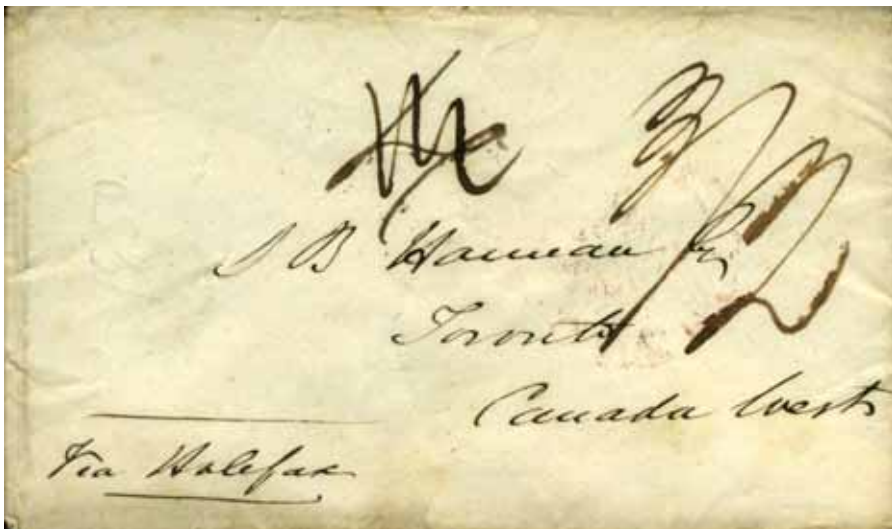 3/2
S B Harman Esq
Toronto
Canada West
Via Halefax